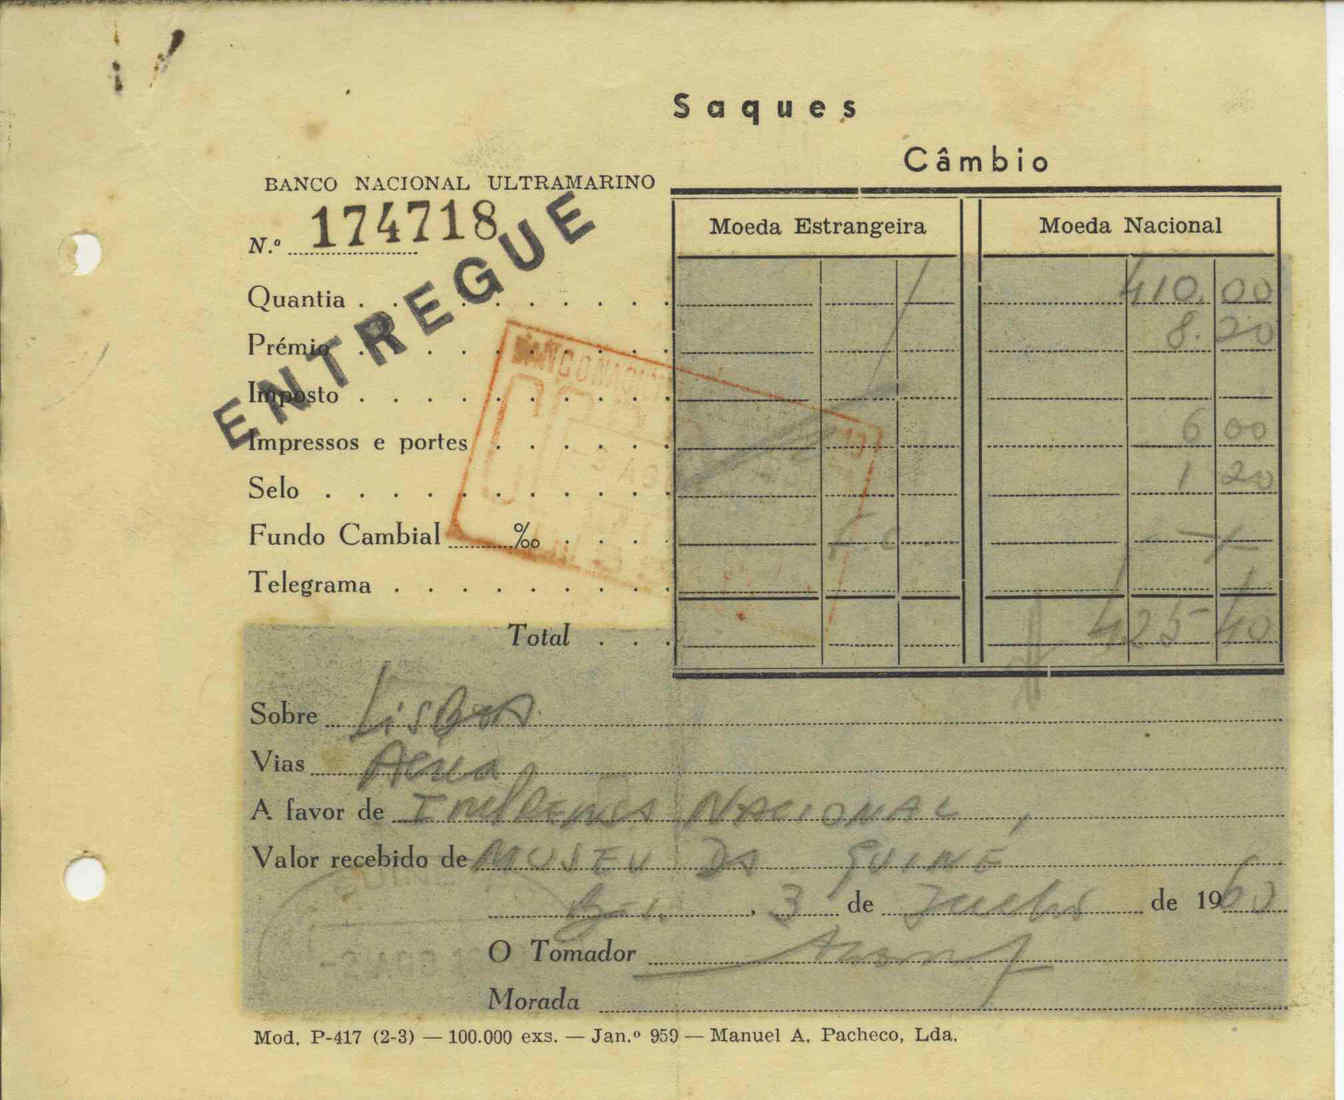 Saques
Câmbio
BANCO NACIONAL ULTRAMARINO
N.º 174718
ENTREGUE
Moeda Estrangeira Moeda Nacional
Quantia . . . . . . . . 410.00
Prémio . . . . . . . . 8.20
Imposto . . . . . . . .
Impressos e portes . . . . . 6 00
Selo . . . . . . . . . 1 20
Fundo Cambial ‰ . . . .
Telegrama . . . . . . . .
Total . . . 425 40
Sobre Lisboa
Vias Aérea
A favor de IMPRENSA NACIONAL,
Valor recebido de MUSEU DA GUINÉ
3 de de 1960
O Tomador
Morada
Mod. P-417 (2-3) — 100.000 exs. — Jan.º 959 — Manuel A. Pacheco, Lda.